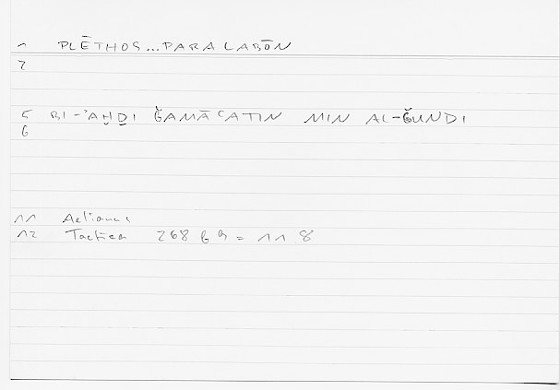 1 PLĒTHOS...PARALABŌN
2
5 BI-'AḪḎI ǦAMĀʿATIN MIN AL-ǦUNDI
6
11 Aelianus
12 Tactica 268 b 9 = 11 8